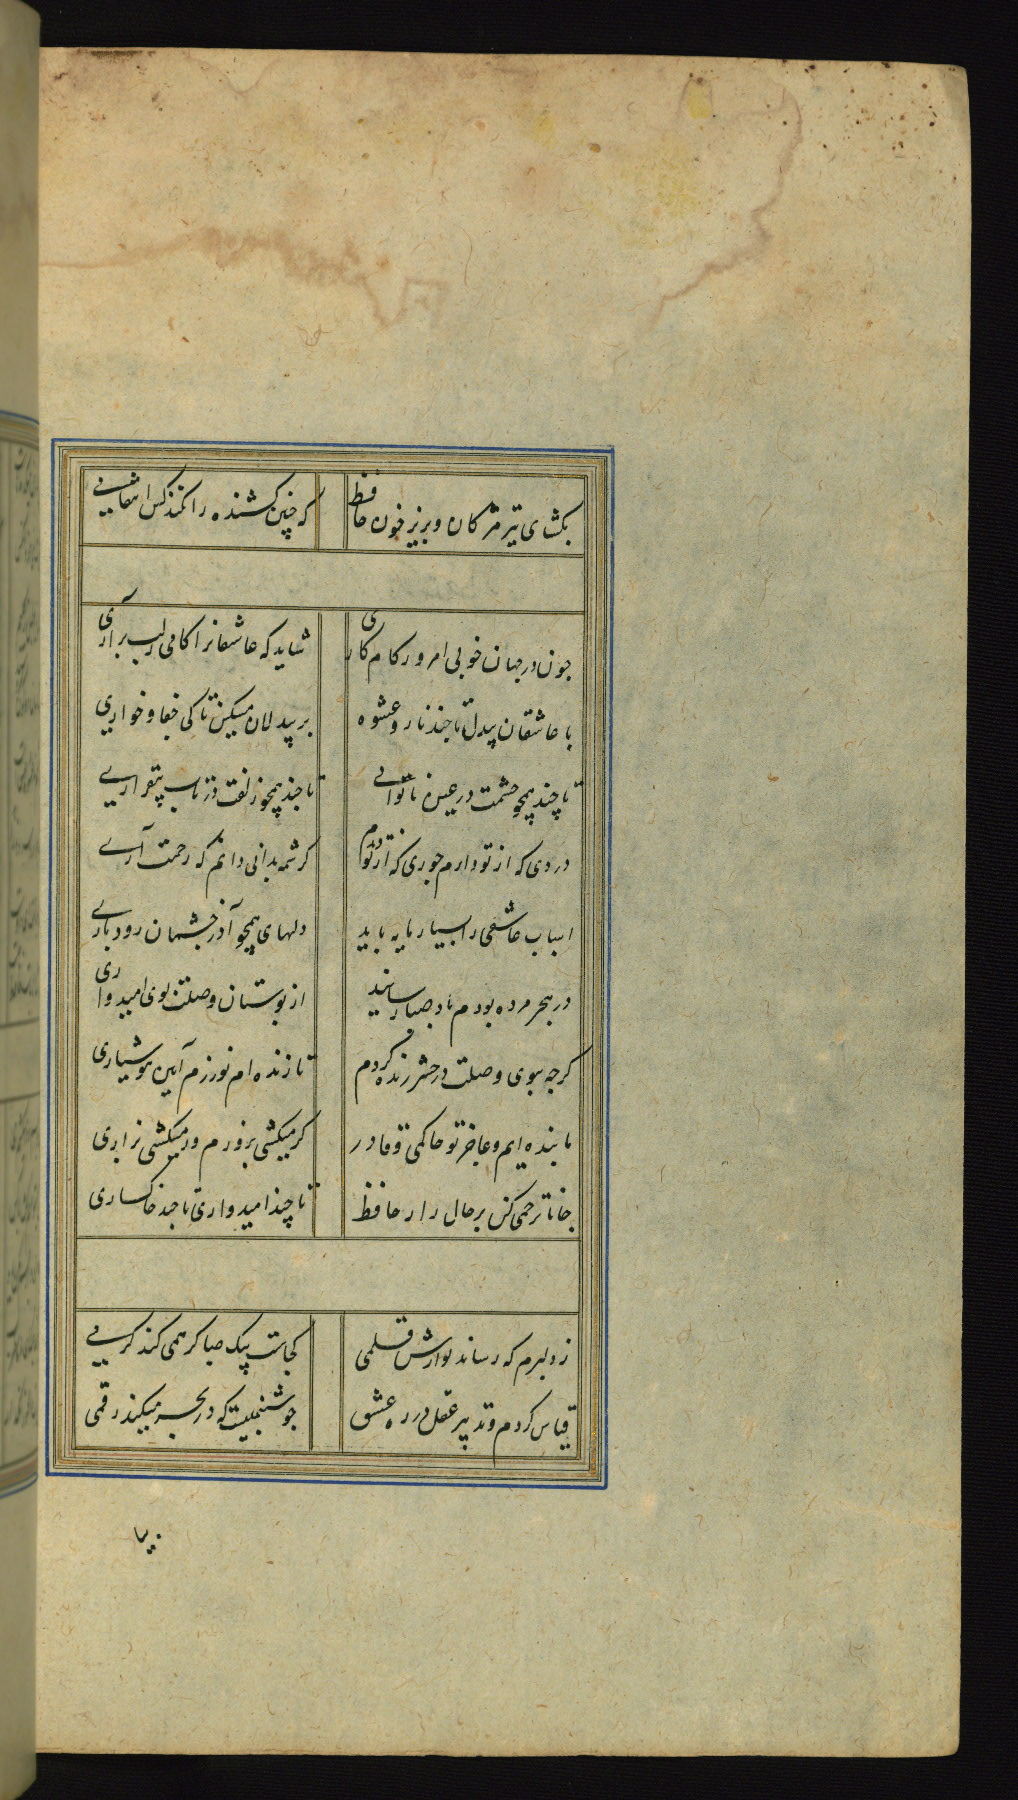 بکشای تیر مژکان و بریز خون حافظ که چنین کشنده را نکند کس انتقامی
جون در جهان خوبی امروز کام کاری شاید که عاشقانرا کامی ز لب برآری
با عاشقان بیدل تا جند ناز و عشوه بر بیدلان مسکین تا کی جفا و خواری
تا چند همچو چشمت در عین ناتوانی تا جند همچو زلفت در تاب بیقراری
دردی که از تو دارم جوری که از تو دیدم کر شمه بدانی دانم که رحمت آری
اسباب عاشقی را بسیار مایه باید دلهای همچو آذر چشمان رودباری
در هجر مرده بودم باد صبا رسانید از بوستان وصلت بوی امیدواری
کرچه ببوی وصلت در حشر زنده کردم تا زنده ام نورزم آیین هوشیاری
ما بنده ایم و عاجز تو حاکمی و قادر کر میکشی بزورم ور میکشی بزاری
جانا ترحمی کن بر حال زار حافظ تا چند امیدواری تا جند خاکساری
ز دلبرم که رساند نوازش قلمی کجاست پیک صبا کر همی کند کرمی
قیاس کردم و تدبیر عقل در ره عشق جو شبنمیست که در بحر میکند رقمی
بیا